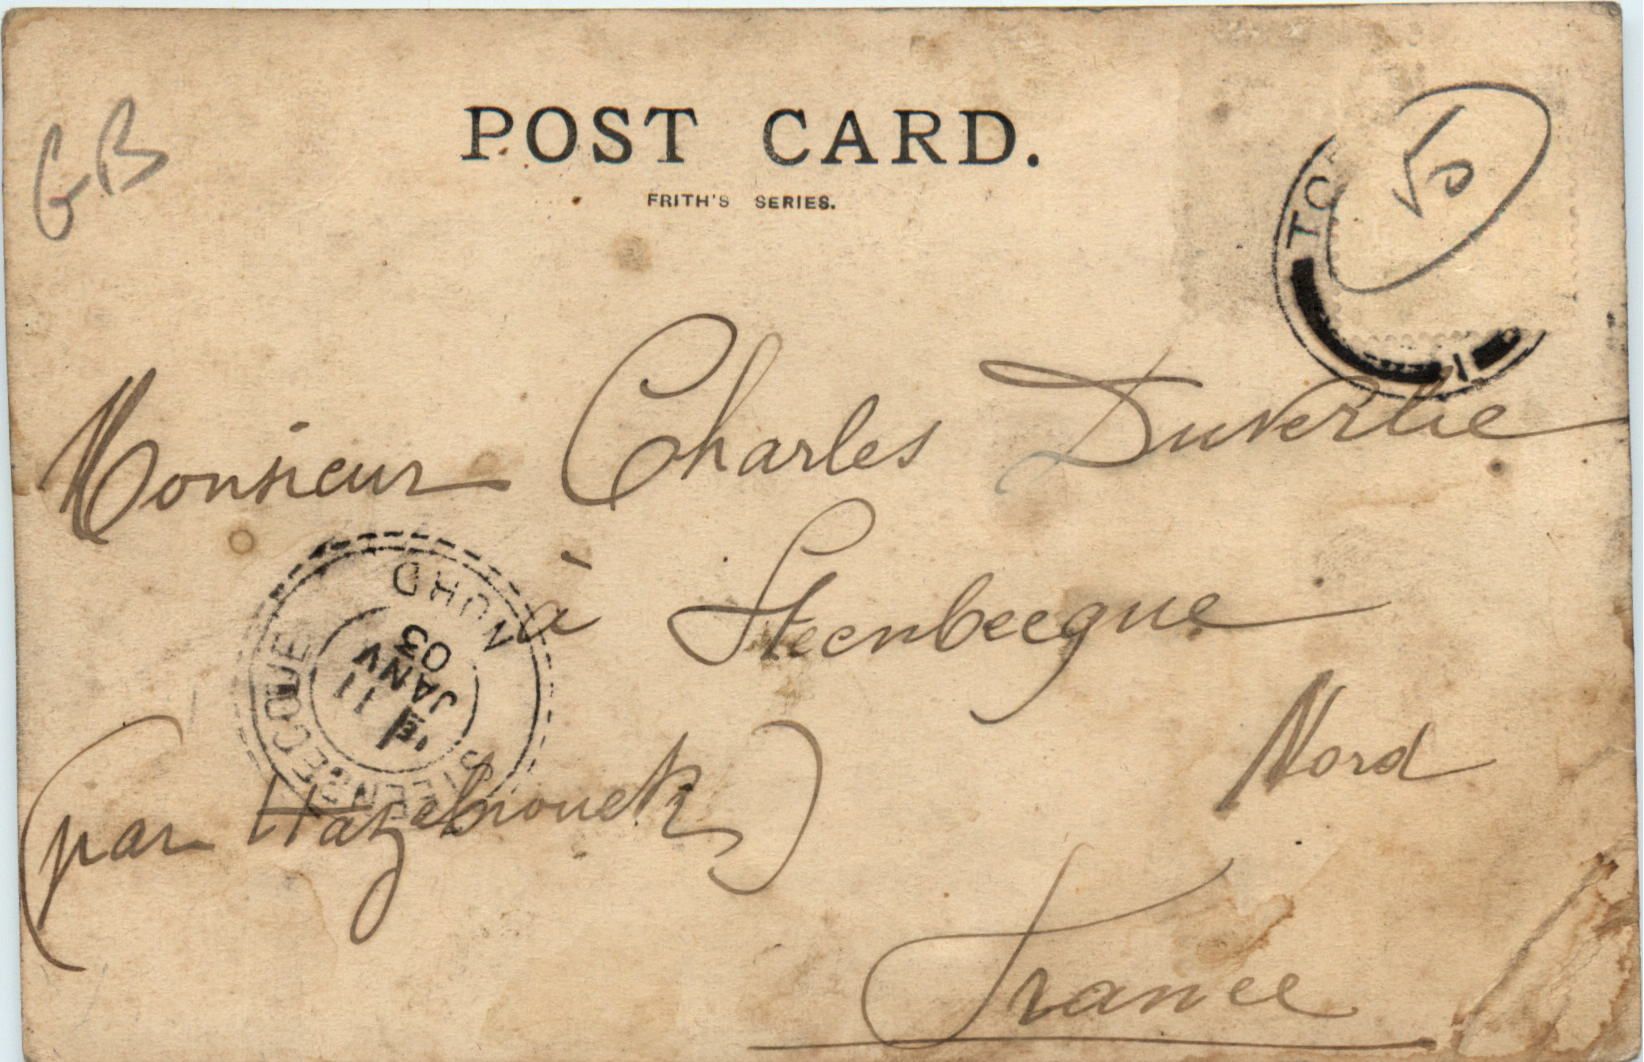 GB
POST CARD.
FRITH'S SERIES.
50
TO
Monsieur Charles Duverlie
à Steenbecque
Nord
(par Hazebrouck)
France
STEENBECQUE
11
JANV
03
NORD